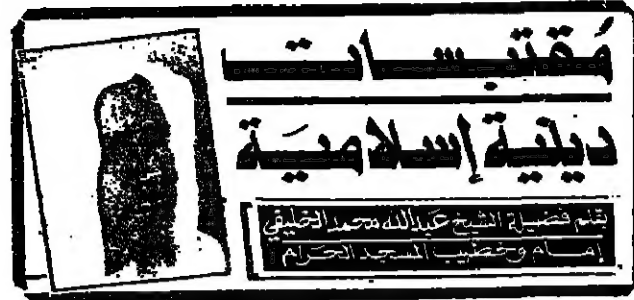 مُقتبسات
دينية إسلامية
بقلم فضيلة الشيخ عبدالله محمد الخليفي
إمام وخطيب المسجد الحرام